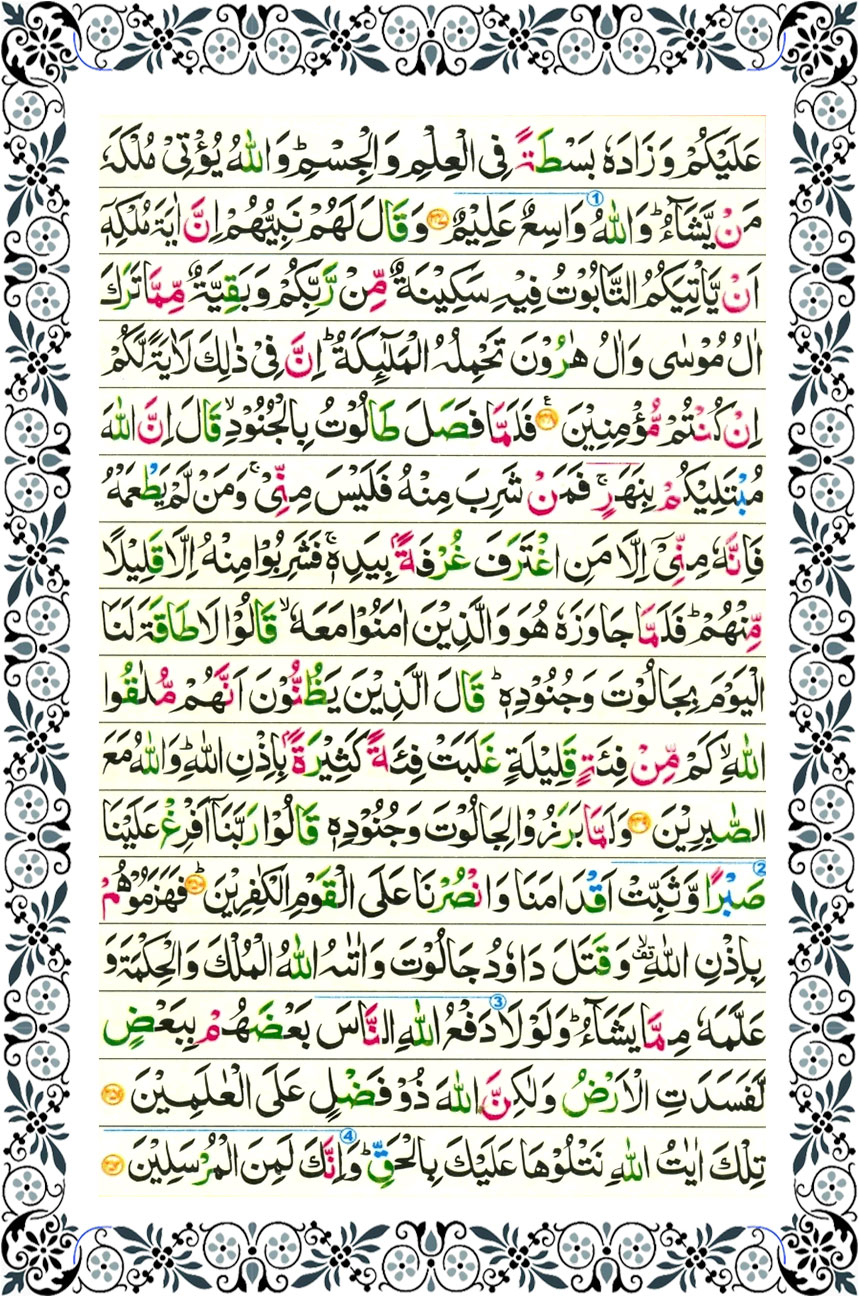 عَلَيْكُمْ وَزَادَهٗ بَسْطَةً فِی الْعِلْمِ وَالْجِسْمِ ؕ وَاللّٰهُ یُؤْتِیْ مُلْكَهٗ
مَنْ یَّشَآءُ ؕ وَاللّٰهُ وَاسِعٌ عَلِیْمٌ ۟ وَقَالَ لَهُمْ نَبِیُّهُمْ اِنَّ اٰیَةَ مُلْكِهٖۤ
اَنْ یَّاْتِیَكُمُ التَّابُوْتُ فِیْهِ سَكِیْنَةٌ مِّنْ رَّبِّكُمْ وَبَقِیَّةٌ مِّمَّا تَرَكَ
اٰلُ مُوْسٰی وَاٰلُ هٰرُوْنَ تَحْمِلُهُ الْمَلٰٓىِٕكَةُ ؕ اِنَّ فِیْ ذٰلِكَ لَاٰیَةً لَّكُمْ
اِنْ كُنْتُمْ مُّؤْمِنِیْنَ ۟ فَلَمَّا فَصَلَ طَالُوْتُ بِالْجُنُوْدِ ۙ قَالَ اِنَّ اللّٰهَ
مُبْتَلِیْكُمْ بِنَهَرٍ ۚ فَمَنْ شَرِبَ مِنْهُ فَلَیْسَ مِنِّیْ ۚ وَمَنْ لَّمْ یَطْعَمْهُ
فَاِنَّهٗ مِنِّیْۤ اِلَّا مَنِ اغْتَرَفَ غُرْفَةًۢ بِیَدِهٖ ۚ فَشَرِبُوْا مِنْهُ اِلَّا قَلِیْلًا
مِّنْهُمْ ؕ فَلَمَّا جَاوَزَهٗ هُوَ وَالَّذِیْنَ اٰمَنُوْا مَعَهٗ ۙ قَالُوْا لَا طَاقَةَ لَنَا
الْیَوْمَ بِجَالُوْتَ وَجُنُوْدِهٖ ؕ قَالَ الَّذِیْنَ یَظُنُّوْنَ اَنَّهُمْ مُّلٰقُوا
اللّٰهِ ۙ كَمْ مِّنْ فِئَةٍ قَلِیْلَةٍ غَلَبَتْ فِئَةً كَثِیْرَةًۢ بِاِذْنِ اللّٰهِ ؕ وَاللّٰهُ مَعَ
الصّٰبِرِیْنَ ۟ وَلَمَّا بَرَزُوْا لِجَالُوْتَ وَجُنُوْدِهٖ قَالُوْا رَبَّنَاۤ اَفْرِغْ عَلَیْنَا
صَبْرًا وَّثَبِّتْ اَقْدَامَنَا وَانْصُرْنَا عَلَی الْقَوْمِ الْكٰفِرِیْنَ ۟ؕ فَهَزَمُوْهُمْ
بِاِذْنِ اللّٰهِ ۙ۫ وَقَتَلَ دَاوٗدُ جَالُوْتَ وَاٰتٰىهُ اللّٰهُ الْمُلْكَ وَالْحِكْمَةَ وَ
عَلَّمَهٗ مِمَّا یَشَآءُ ؕ وَلَوْلَا دَفْعُ اللّٰهِ النَّاسَ بَعْضَهُمْ بِبَعْضٍ
لَّفَسَدَتِ الْاَرْضُ وَلٰكِنَّ اللّٰهَ ذُوْ فَضْلٍ عَلَی الْعٰلَمِیْنَ ۟
تِلْكَ اٰیٰتُ اللّٰهِ نَتْلُوْهَا عَلَیْكَ بِالْحَقِّ ؕ وَاِنَّكَ لَمِنَ الْمُرْسَلِیْنَ ۟